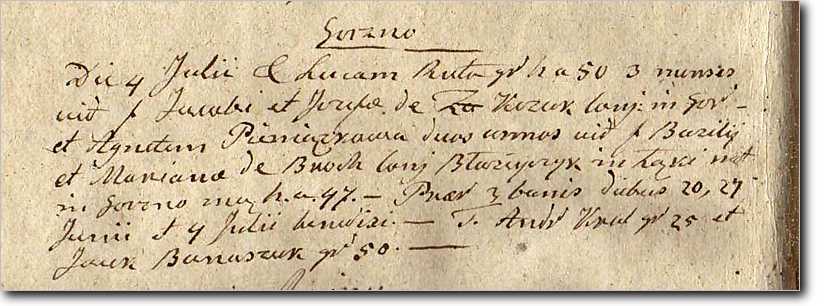 Gorzno
Die 4 Julii Lucam Ruta gr h a 50 3 menses
vid f Jacobi et Jozefae de Kozuk conj: in Gor-
et Agnetem Pieniazkowa duos annos vid f Bazilij
et Marianae de Brock conj Blazczyk in Łąki nat
in Gorzno mag h. a. 47. — Praes 3 banis diebus 20, 27
Junii et 4 Julii benedixi. — T. Andr Krol gr 25 et
Jacek Banaszuk gr 50. —